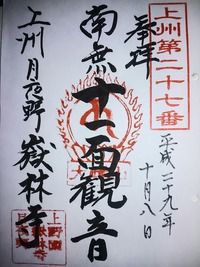 上州第二十七番
奉拝
平成二十九年
十月八日
南無十一面観音
上州月夜野嶽林寺